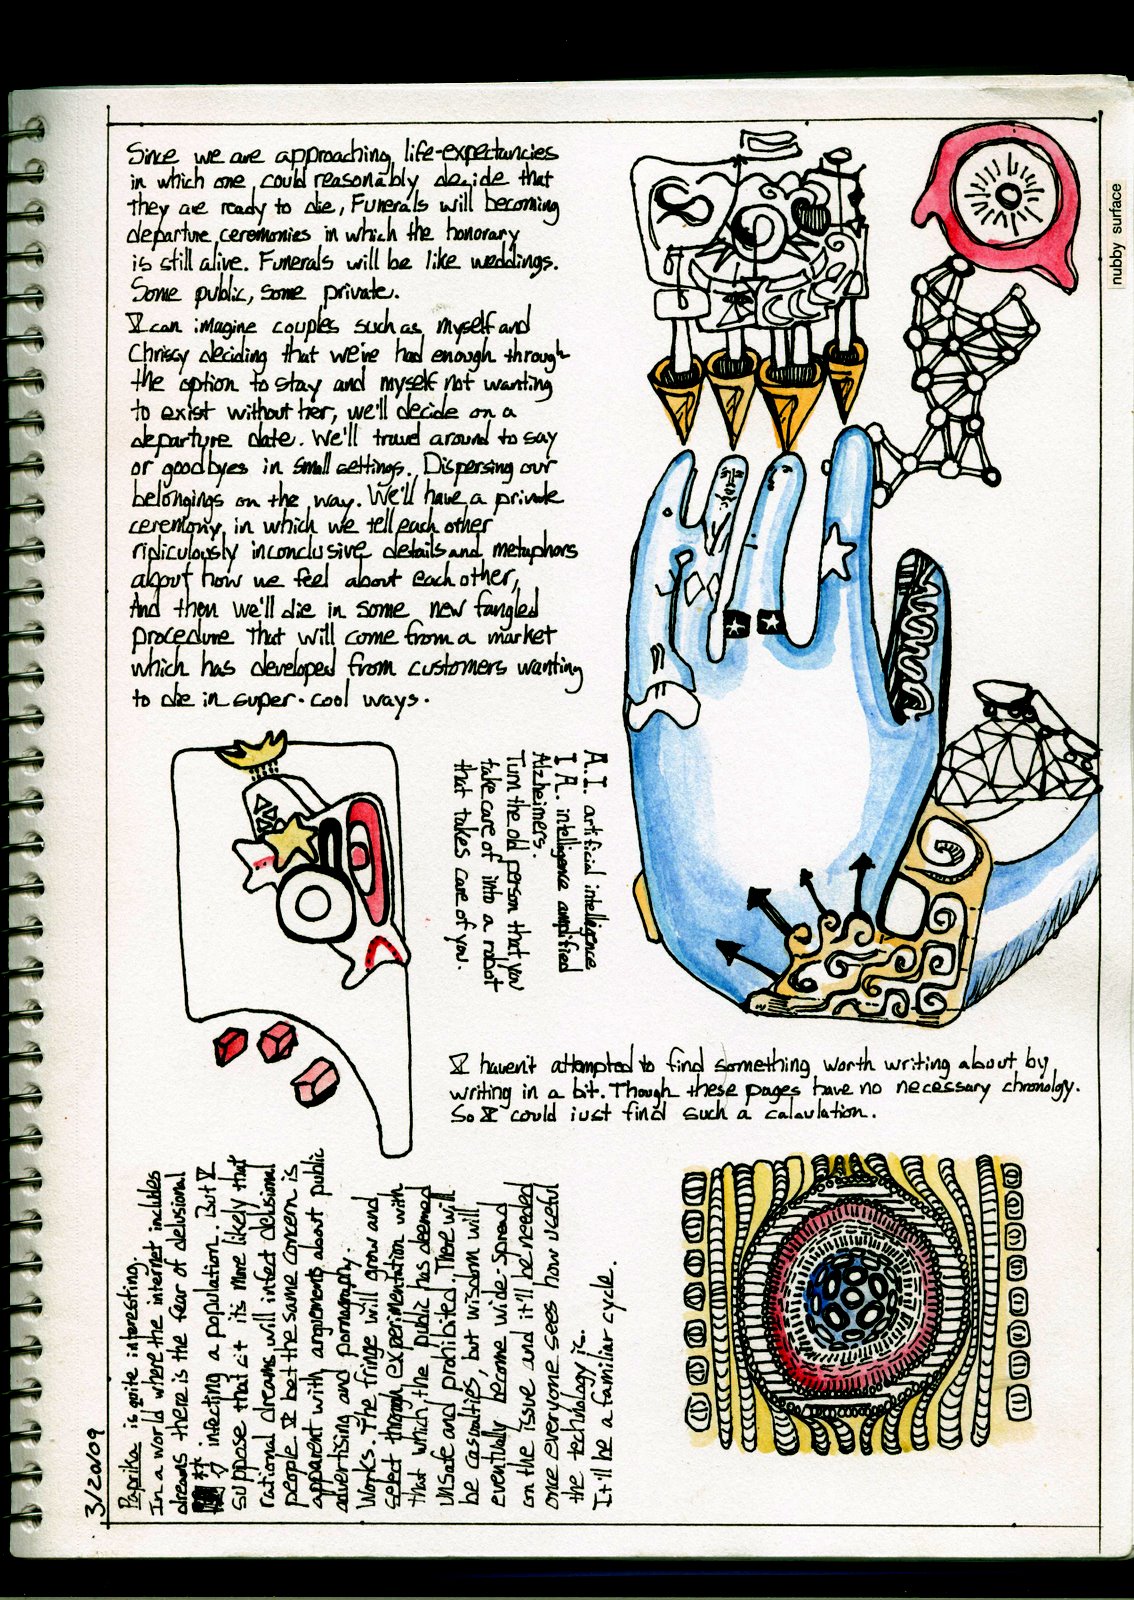 Since we are approaching life-expectancies
in which one could reasonably decide that
they are ready to die, Funerals will becoming
departure ceremonies in which the honorary
is still alive. Funerals will be like weddings.
Some public, some private.
I can imagine couples such as myself and
Chrissy deciding that we've had enough through
the option to stay and myself not wanting
to exist without her, we'll decide on a
departure date. We'll travel around to say
or goodbyes in small settings. Dispersing our
belongings on the way. We'll have a private
ceremony, in which we tell each other
ridiculously inconclusive details and metaphors
about how we feel about each other,
And then we'll die in some new fangled
procedure that will come from a market
which has developed from customers wanting
to die in super-cool ways.
nubby surface
A.I. artificial intelligence
I A. intelligence amplified
Alzheimers.
Turn the old person that you
take care of into a robot
that takes care of you.
I haven't attempted to find something worth writing about by
writing in a bit. Though these pages have no necessary chronolgy.
So I could just find such a calculation.
3/20/09
Paprika is quite interesting.
In a world where the internet includes
dreams there is the fear of delusional
infecting a population. But I
suppose that it its more likely that
rational dreams will infect delusional
people. I bet the same concern is
apparent with arguements about public
advertising and pornagraphy.
Works. The fringe will grow and
select through experimentation with
that which the public has deemed
unsafe and prohibited. There will
be casualties, but wisdom will
eventually become wide-spread
on the issue and it'll be needed
once everyone sees how useful
the technology is.
It'll be a familiar cycle.